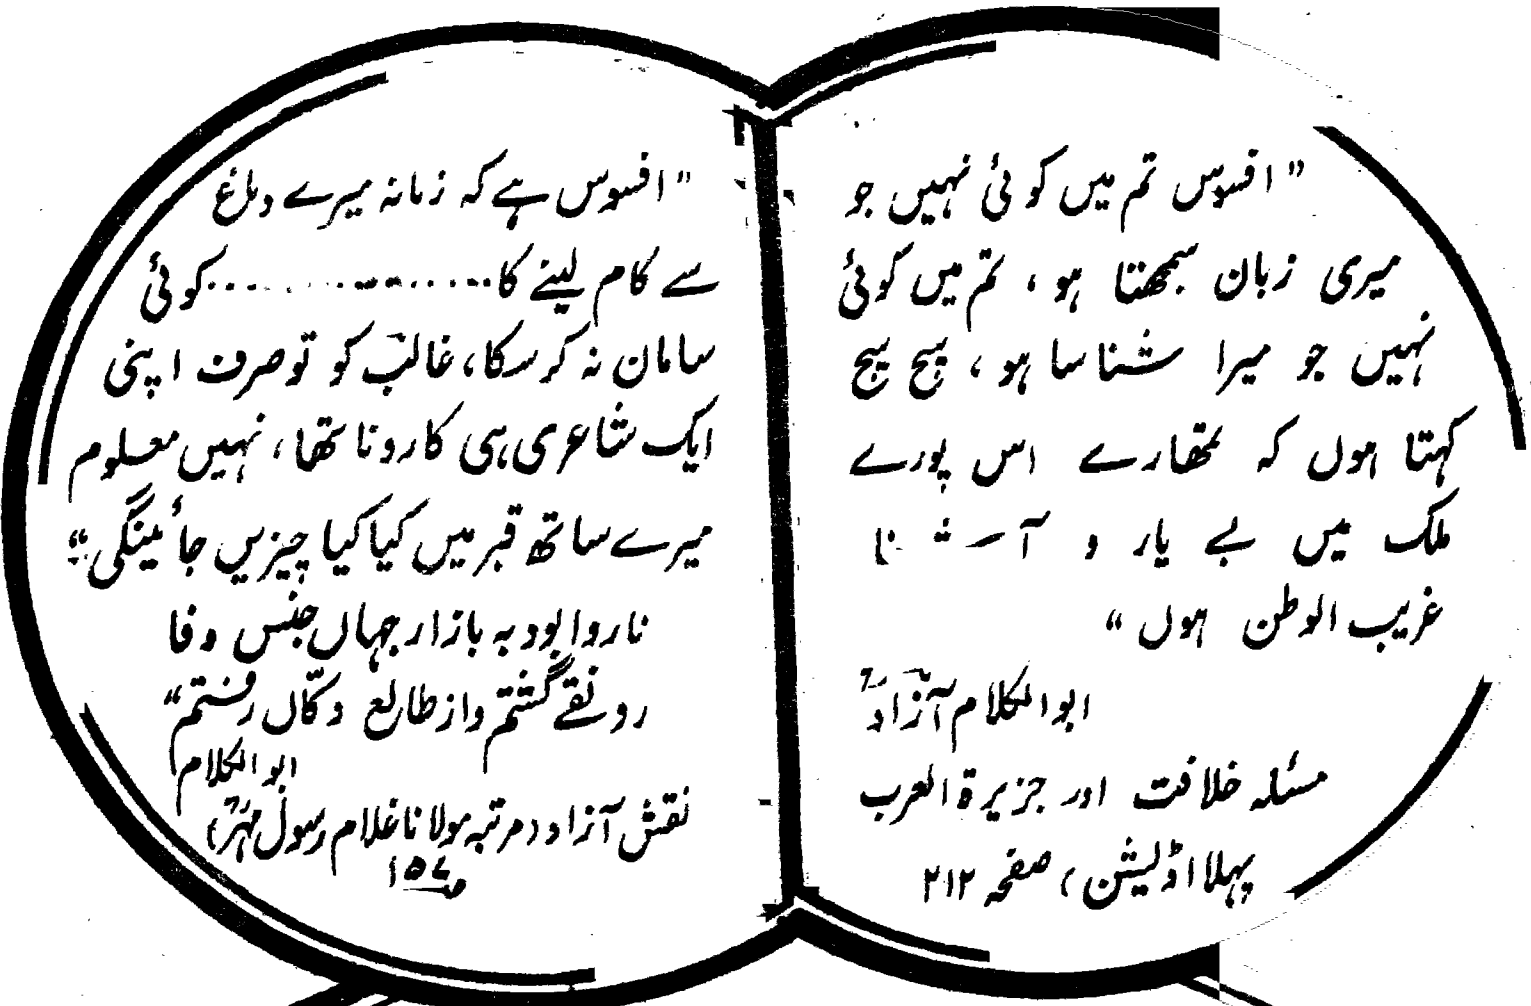 " افسوس تم میں کوئی نہیں جو
میری زبان سمجھتا ہو، تم میں کوئی
نہیں جو میرا شناسا ہو، سچ سچ
کہتا ہوں کہ تمھارے اس پورے
ملک میں بے یار و آشنا
غریب الوطن ہوں "
ابوالکلام آزادؒ
مسئلہ خلافت اور جزیرۃ العرب
پہلا اڈلیشن، صفحہ ۲۱۲
" افسوس ہے کہ زمانہ میرے دماغ
سے کام لینے کا....................کوئی
سامان نہ کرسکا، غالبؔ کو تو صرف اپنی
ایک شاعری ہی کا رونا تھا، نہیں معلوم
میرے ساتھ قبر میں کیا کیا چیزیں جائینگی"
ناروا بود بہ بازار جہاں جنس وفا
رونقے گشتم و از طالع دکّاں رفتم"
ابوالکلام
نقش آزاد (مرتبہ مولانا غلام رسول مہرؔ)
ص۱۵۷